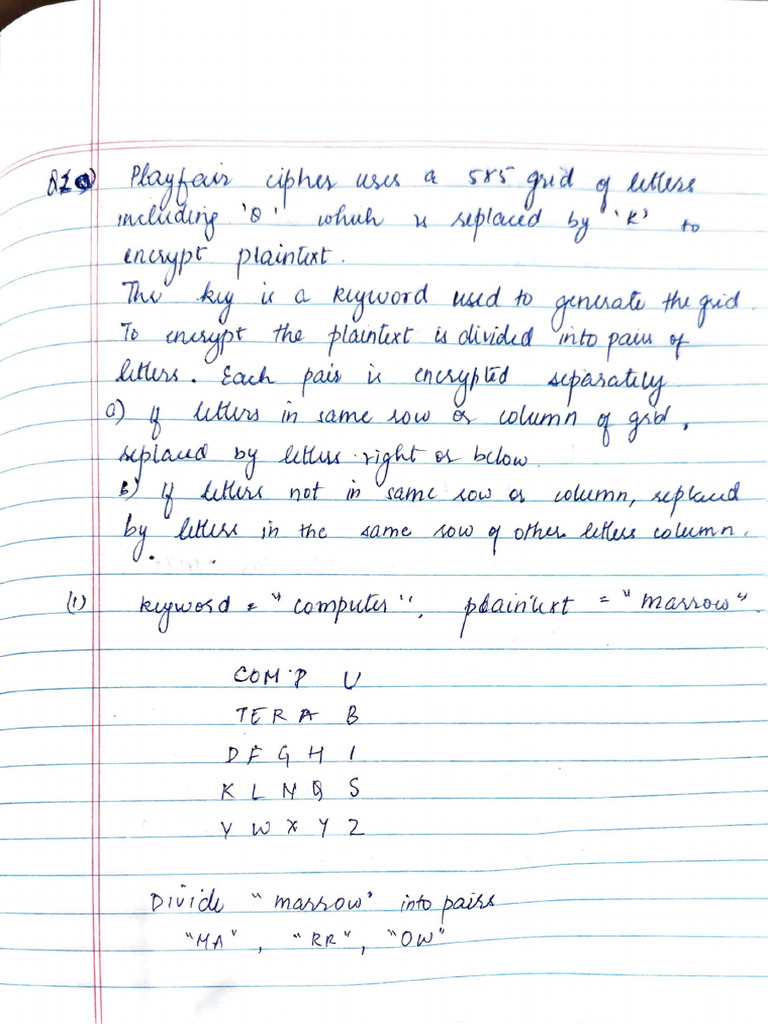 Q1 a) Playfair cipher uses a 5x5 grid of letters
including 'Q' which is replaced by 'K' to
encrypt plaintext.
The key is a keyword used to generate the grid.
To encrypt the plaintext is divided into pairs of
letters. Each pair is encrypted separately
a) If letters in same row or column of grid,
replaced by letters right or below.
b) If letters not in same row or column, replaced
by letters in the same row of other letters column.
(1) keyword = "computer", plaintext = "marrow".
COM P U
TERA B
DFGH I
KLNQ S
VWXY Z
Divide "marrow" into pairs
"MA", "RR", "OW"